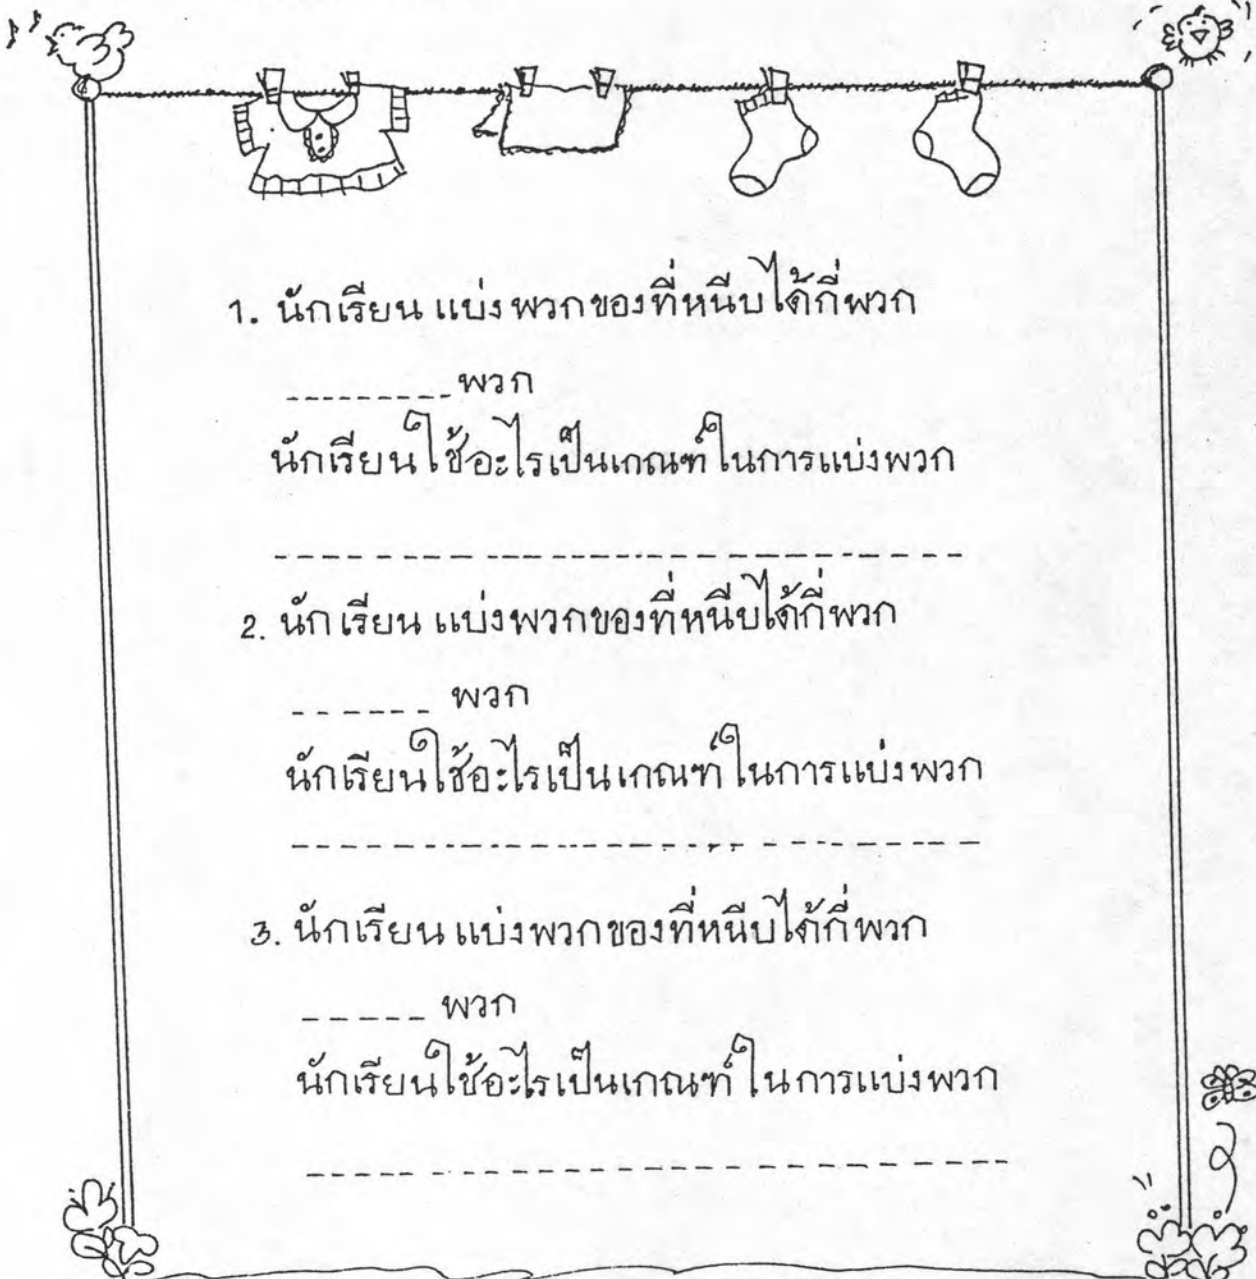 1. นักเรียน แบ่งพวกของที่หนีบได้กี่พวก
--------- พวก
นักเรียนใช้อะไรเป็นเกณฑ์ในการแบ่งพวก
2. นักเรียน แบ่งพวกของที่หนีบได้กี่พวก
------ พวก
นักเรียนใช้อะไรเป็นเกณฑ์ในการแบ่งพวก
3. นักเรียน แบ่งพวกของที่หนีบได้กี่พวก
----- พวก
นักเรียนใช้อะไรเป็นเกณฑ์ในการแบ่งพวก